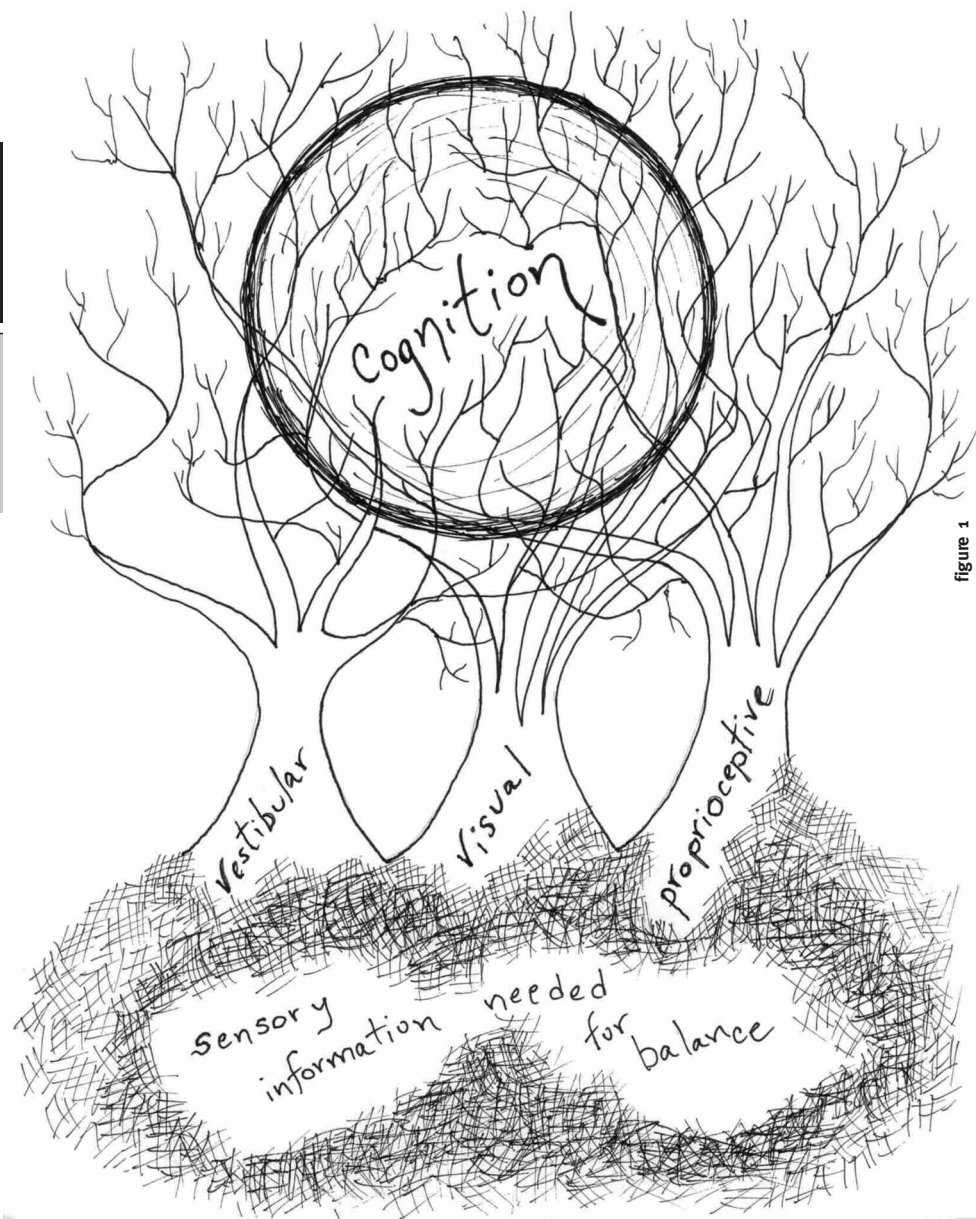 Cognition
figure 1
vestibular
visual
proprioceptive
sensory
information
needed
for
balance